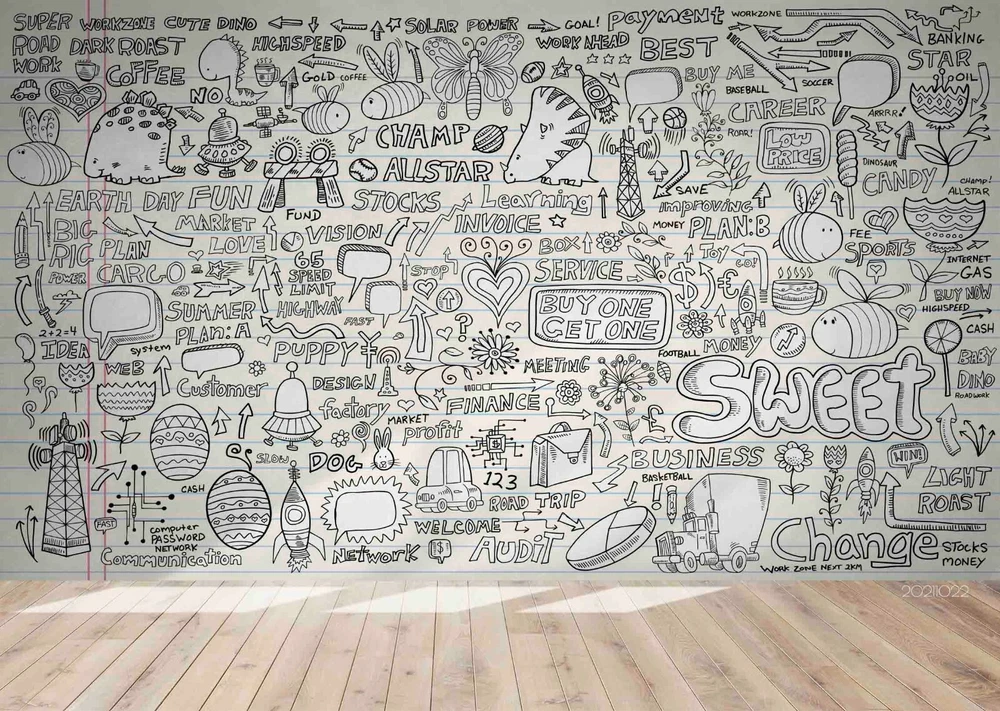 SUPER WORKZONE CUTE DINO
SOLAR POWER
GOAL!
payment
WORKZONE
BANKING
ROAD WORK
DARK ROAST
HIGHSPEED
WORK AHEAD
BEST
STAR
COFFEE
GOLD COFFEE
BUY ME
SOCCER
OIL
NO
BASEBALL
CAREER
ARRR!
CHAMP
ROAR!
LOW PRICE
ALLSTAR
DINOSAUR
CANDY
CHAMP!
ALLSTAR
SAVE
EARTH DAY FUN
STOCKS
Learning
improving
FUND
BIG
MARKET
VISION
INVOICE
MONEY
PLAN:B
FEE
RIG PLAN
LOVE
BOX
TOY
GO!
SPORTS
INTERNET
POWER
CARGO
65
SPEED LIMIT
STOP
SERVICE
$
£
GAS
SUMMER
HIGHWAY
BUY ONE
GET ONE
BUY NOW
HIGHSPEED
2+2=4
PLAN:A
FAST
?
CASH
IDEA
system
PUPPY
¥
MONEY
FOOTBALL
WEB
MEETING
SWEET
BABY DINO
ROADWORK
Customer
DESIGN
factory
MARKET
FINANCE
£
profit
SLOW
DOG
BUSINESS
WIN!
CASH
123
BASKETBALL
LIGHT ROAST
FAST
computer
PASSWORD
NETWORK
ROAD TRIP
!
WELCOME
Change
Communication
NETWORK
$
AUDIT
STOCKS
MONEY
WORK ZONE NEXT 2KM
20211022